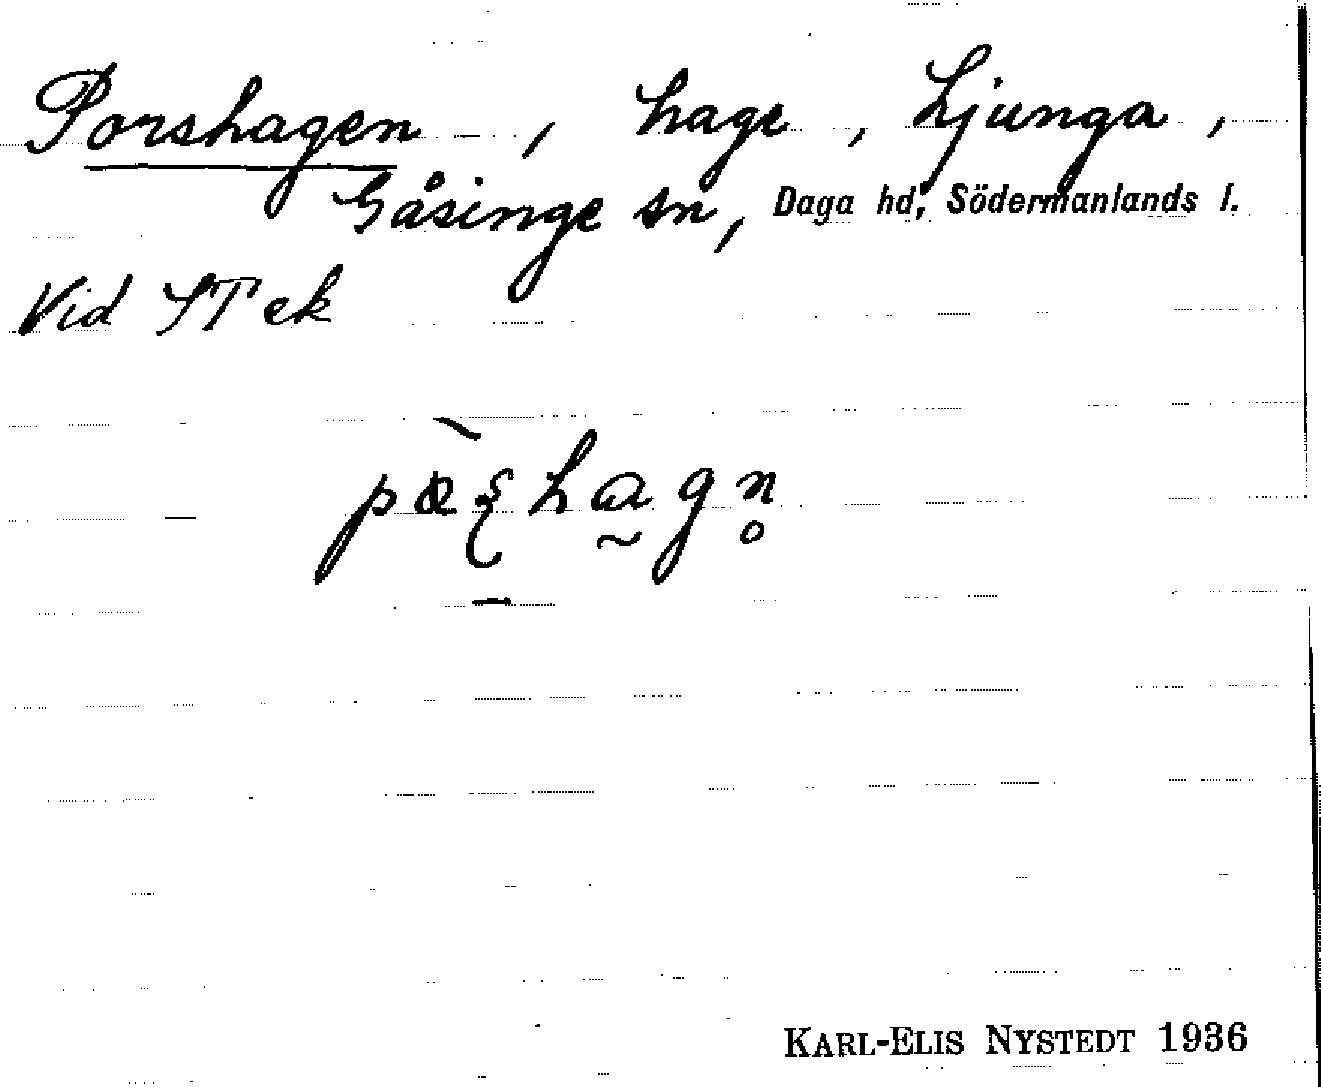 Porshagen, hage, Ljunga,
Gåsinge sn, Daga hd, Södermanlands l.
Vid ST ek
KARL-ELIS NYSTEDT 1936